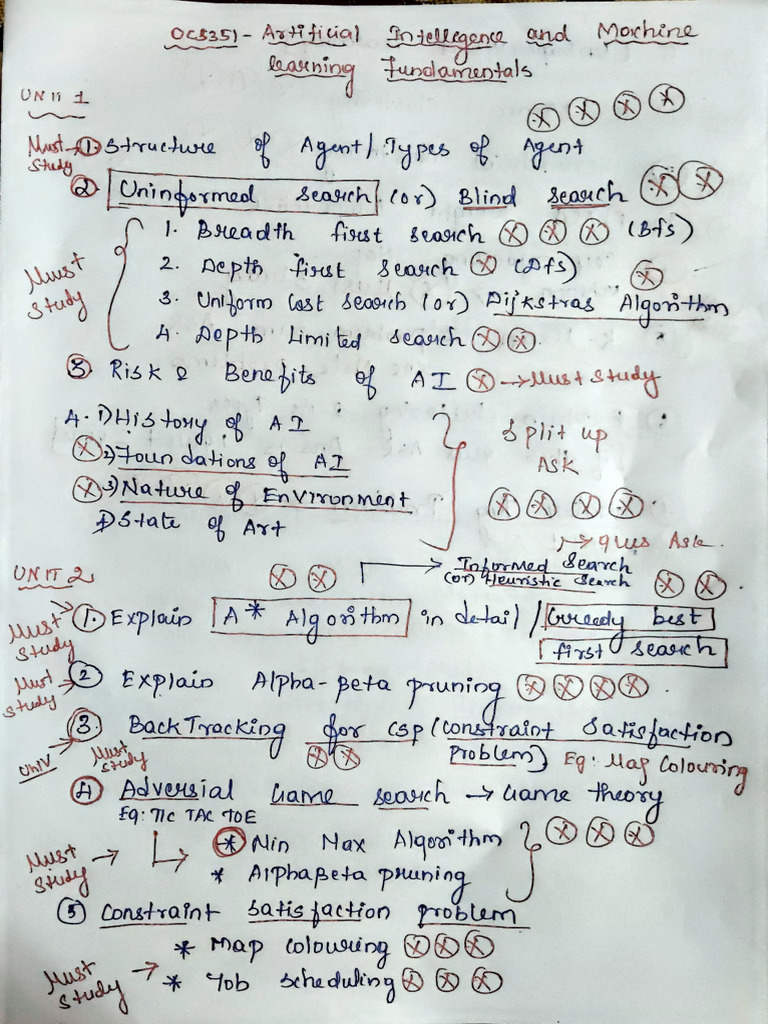 OCS351 - Artificial Intellegence and Machine
learning Fundamentals
UNIT 1
Must Study → 1. Structure of Agent / Types of Agent
2 Uninformed search (or) Blind search
Must Study
1. Breadth first search (Bfs)
2. Depth first search (Dfs)
3. Uniform cost search (or) Dijkstras Algorithm
4. Depth Limited search
3 Risk & Benefits of AI → Must Study
4. 1) History of AI
2) Foundations of AI
3) Nature of Environment
4) State of Art
Split up
Ask
→ ques Ask.
UNIT 2
Informed Search
(or) Heuristic Search
Must Study → 1. Explain A* Algorithm in detail / Greedy best
first search
Must Study → 2 Explain Alpha-Beta pruning
3. BackTracking for CSP (constraint Satisfaction
Univ Must Study
problem) Eg: Map Colouring
4 Adversial Game search → Game theory
Eg: TIC TAC TOE
Must Study →
* Min Max Algorithm
* AlphaBeta pruning
5 Constraint Satisfaction problem
* Map colouring
Must Study → * Job scheduling